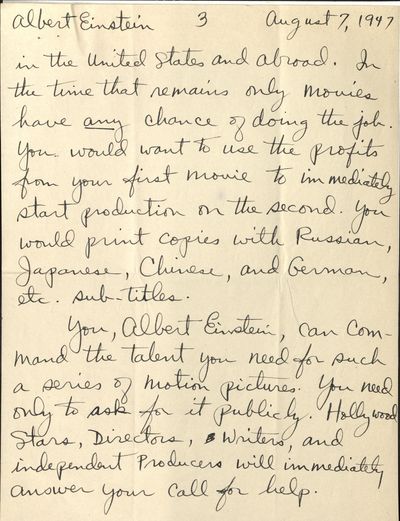 Albert Einstein 3 August 7, 1947
in the United States and abroad. In
the time that remains only movies
have any chance of doing the job.
You would want to use the profits
from your first movie to immediately
start production on the second. You
would print copies with Russian,
Japanese, Chinese, and German,
etc. sub-titles.
You, Albert Einstein, can com-
mand the talent you need for such
a series of motion pictures. You need
only to ask for it publicly. Hollywood
Stars, Directors, Writers, and
independent Producers will immediately
answer your call for help.